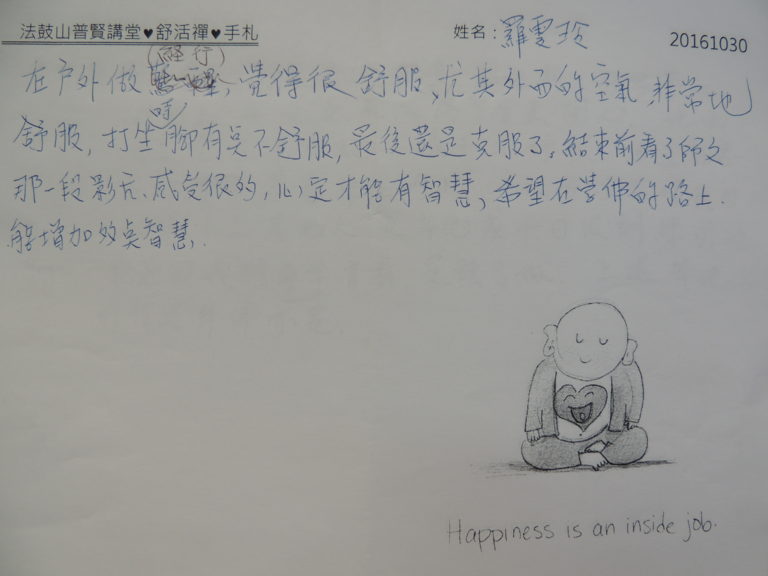 法鼓山普賢講堂♥舒活禪♥手札
姓名：羅雯玲
20161030
(經行)
在戶外做，覺得很舒服、尤其外面的空氣非常地
舒服，打坐時腳有點不舒服，最後還是克服了。結束前看了師父
那一段影片、感受很的，心定才能有智慧、希望在學佛的路上.
能增加些智慧.
Happiness is an inside job.